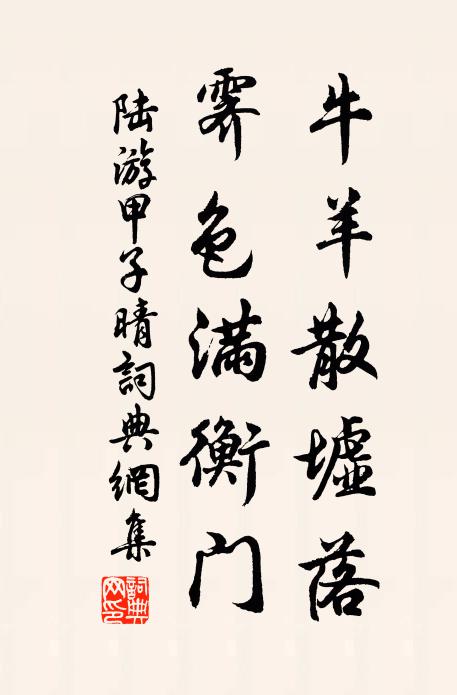 牛羊散墟落
霁色滿衡门
陆游甲子晴詞典網集
詞典网印